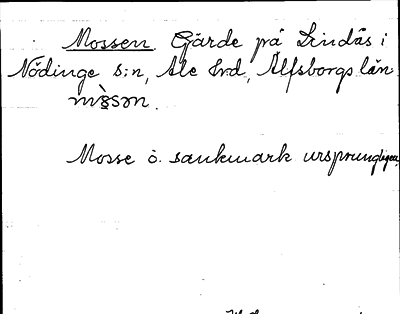 Mossen. Gärde på Lindås i
Nödinge s:n, Ale hrd, Älfsborgs län
Mosse o. sankmark ursprungligen.